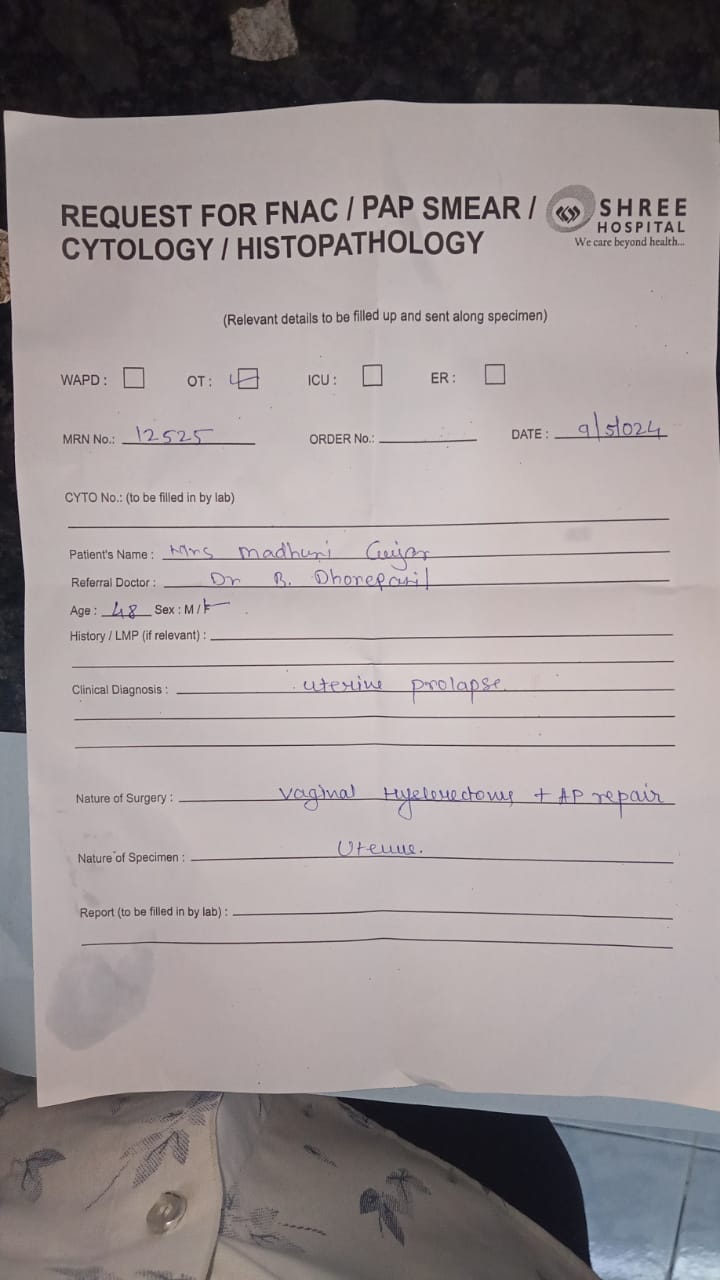 REQUEST FOR FNAC / PAP SMEAR /
CYTOLOGY / HISTOPATHOLOGY
SHREE
HOSPITAL
We care beyond health...
(Relevant details to be filled up and sent along specimen)
WAPD : OT : ICU : ER :
MRN No.: 12525 ORDER No.: DATE : 9/5/024
CYTO No.: (to be filled in by lab)
Patient's Name : Mrs Madhuri Gujar
Referral Doctor : Dr B. Dhonepatil
Age : 48 Sex : M / F
History / LMP (if relevant) :
Clinical Diagnosis : uterine prolapse.
Nature of Surgery : Vaginal + AP repair
Nature of Specimen :
Report (to be filled in by lab) :